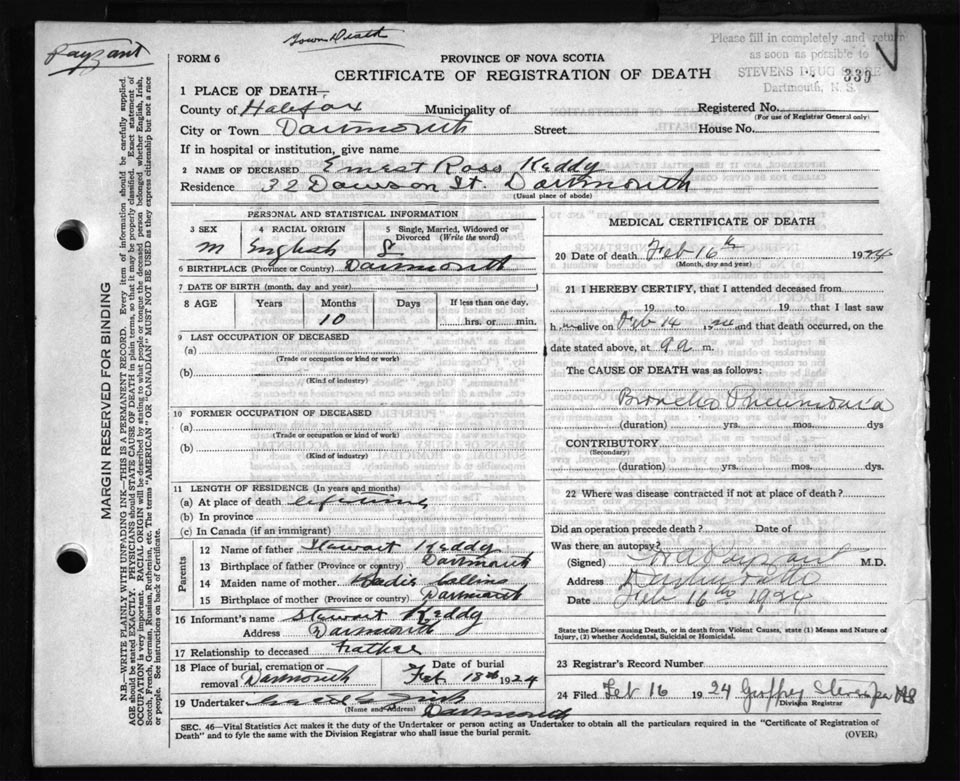 Payzant
Town Death
Please fill in completely and return
as soon as possible to
STEVENS DRUG STORE
Dartmouth, N. S.
339
FORM 6
PROVINCE OF NOVA SCOTIA
CERTIFICATE OF REGISTRATION OF DEATH
1 PLACE OF DEATH—
County of Halifax Municipality of Registered No.
(For use of Registrar General only)
City or Town Dartmouth Street House No.
If in hospital or institution, give name
2 NAME OF DECEASED Ernest Ross Keddy
Residence 32 Dawson St. Dartmouth
(Usual place of abode)
PERSONAL AND STATISTICAL INFORMATION
3 SEX 4 RACIAL ORIGIN 5 Single, Married, Widowed or
Divorced (Write the word)
m English S
6 BIRTHPLACE (Province or Country) Dartmouth
7 DATE OF BIRTH (month, day and year)
8 AGE Years Months Days If less than one day,
10 hrs. or min.
9 LAST OCCUPATION OF DECEASED
(a)
(Trade or occupation or kind or work)
(b)
(Kind of industry)
10 FORMER OCCUPATION OF DECEASED
(a)
(Trade or occupation or kind of work)
(b)
(Kind of industry)
11 LENGTH OF RESIDENCE (In years and months)
(a) At place of death lifetime
(b) In province
(c) In Canada (if an immigrant)
Parents
12 Name of father Stewart Keddy
13 Birthplace of father (Province or country) Dartmouth
14 Maiden name of mother Collins
15 Birthplace of mother (Province or country) Dartmouth
16 Informant's name Stewart Keddy
Address Dartmouth
17 Relationship to deceased Father
18 Place of burial, cremation or Date of burial
removal Dartmouth Feb 18th 1924
19 Undertaker
(Name and Address) Dartmouth
MEDICAL CERTIFICATE OF DEATH
20 Date of death Feb 16th 1924
(Month, day and year)
21 I HEREBY CERTIFY, that I attended deceased from
19 to 19 that I last saw
h alive on Feb 14 and that death occurred, on the
date stated above, at 9a m.
The CAUSE OF DEATH was as follows:
Broncho Pneumonia
(duration) yrs. mos. dys
CONTRIBUTORY
(Secondary)
(duration) yrs. mos. dys.
22 Where was disease contracted if not at place of death?
Did an operation precede death? Date of
Was there an autopsy?
(Signed) Payzant M.D.
Address Dartmouth
Date Feb 16th 1924
State the Disease causing Death, or in death from Violent Causes, state (1) Means and Nature of
Injury, (2) whether Accidental, Suicidal or Homicidal.
23 Registrar's Record Number
24 Filed Feb 16 1924
Division Registrar
SEC. 46—Vital Statistics Act makes it the duty of the Undertaker or person acting as Undertaker to obtain all the particulars required in the "Certificate of Registration of
Death" and to fyle the same with the Division Registrar who shall issue the burial permit. (OVER)
MARGIN RESERVED FOR BINDING
N.B.—WRITE PLAINLY WITH UNFADING INK—THIS IS A PERMANENT RECORD. Every item of information should be carefully supplied.
AGE should be stated EXACTLY. PHYSICIANS should STATE CAUSE OF DEATH in plain terms, so that it may be properly classified. Exact statement of
OCCUPATION is very important. RACIAL ORIGIN will be described by stating to what people or tongue the deceased person belonged whether English, Irish,
Scotch, French, German, Russian, Ruthenian, etc. The terms "AMERICAN" OR "CANADIAN" MUST NOT BE USED as they express citizenship but not a race
or people. See instructions on back of Certificate.